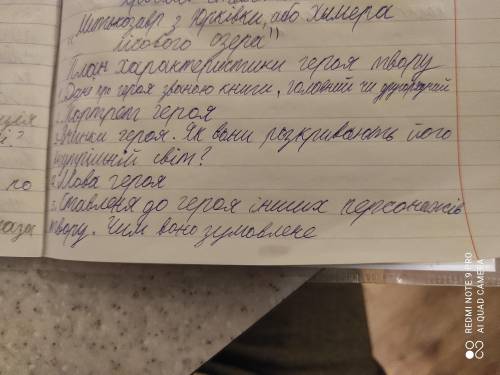 "Митькозавр з Юрківки, або Химера
лісового озера"
План характеристики героя твору
1. героя знаною книги, головний чи другорядний
2. Портрет героя
3. Вчинки героя. Як вони розкривають його
внутрішній світ?
4. Мова героя
5. Ставленя до героя інших персонажів
твору. Чим воно зумовлене
і?
по
REDMI NOTE 9 PRO
AI QUAD CAMERA